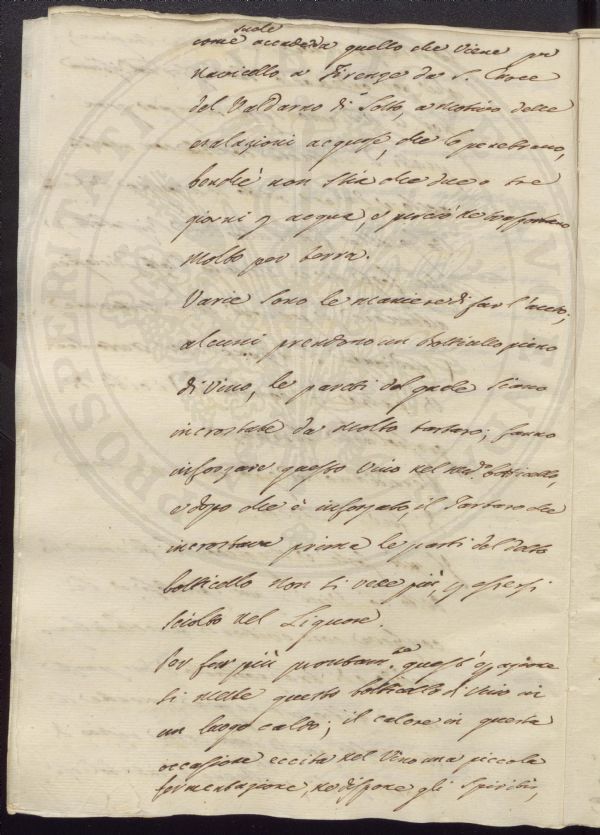 suole
come accadeva quello che viene per
navicello a Firenze da S. Croce
del Valdarno di Sotto, a motivo delle
esalazioni acquose, che lo penetrano,
benchè non stia che due o tre
giorni p acqua, e perciò ne trasportano
molto per terra.
Varie sono le maniere di far l'aceto;
alcuni prendono un botticello pieno
di vino, le pareti del quale siano
incrostate da molto tartaro; fanno
inforzare questo vino nel med.o botticello,
e dopo che è inforzato, il Tartaro che
incrostava prima le parti del detto
botticello non si vede più, p essersi
sciolto nel Liquore.
Per far più prontam.te quest' operazione
si mette questo botticello di vino in
un luogo caldo; il calore in questa
occasione eccita nel Vino una piccola
fermentazione, ne dispone gli spiriti,
PROSPERITATI